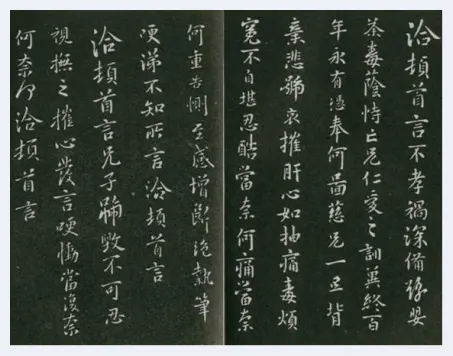 洽頓首言不孝禍深備豫嬰
荼毒蔭恃亡兄仁愛之訓冀終百
年永有憑奉何圖慈兄一旦背
棄悲號哀摧肝心如抽痛毒煩
冤不自堪忍酷當奈何痛當奈
何重告惻至感增斷絕執筆
哽涕不知所言洽頓首言
洽頓首言兄子號毀不可忍
視撫之摧心發言哽慟當復奈
何奈何洽頓首言